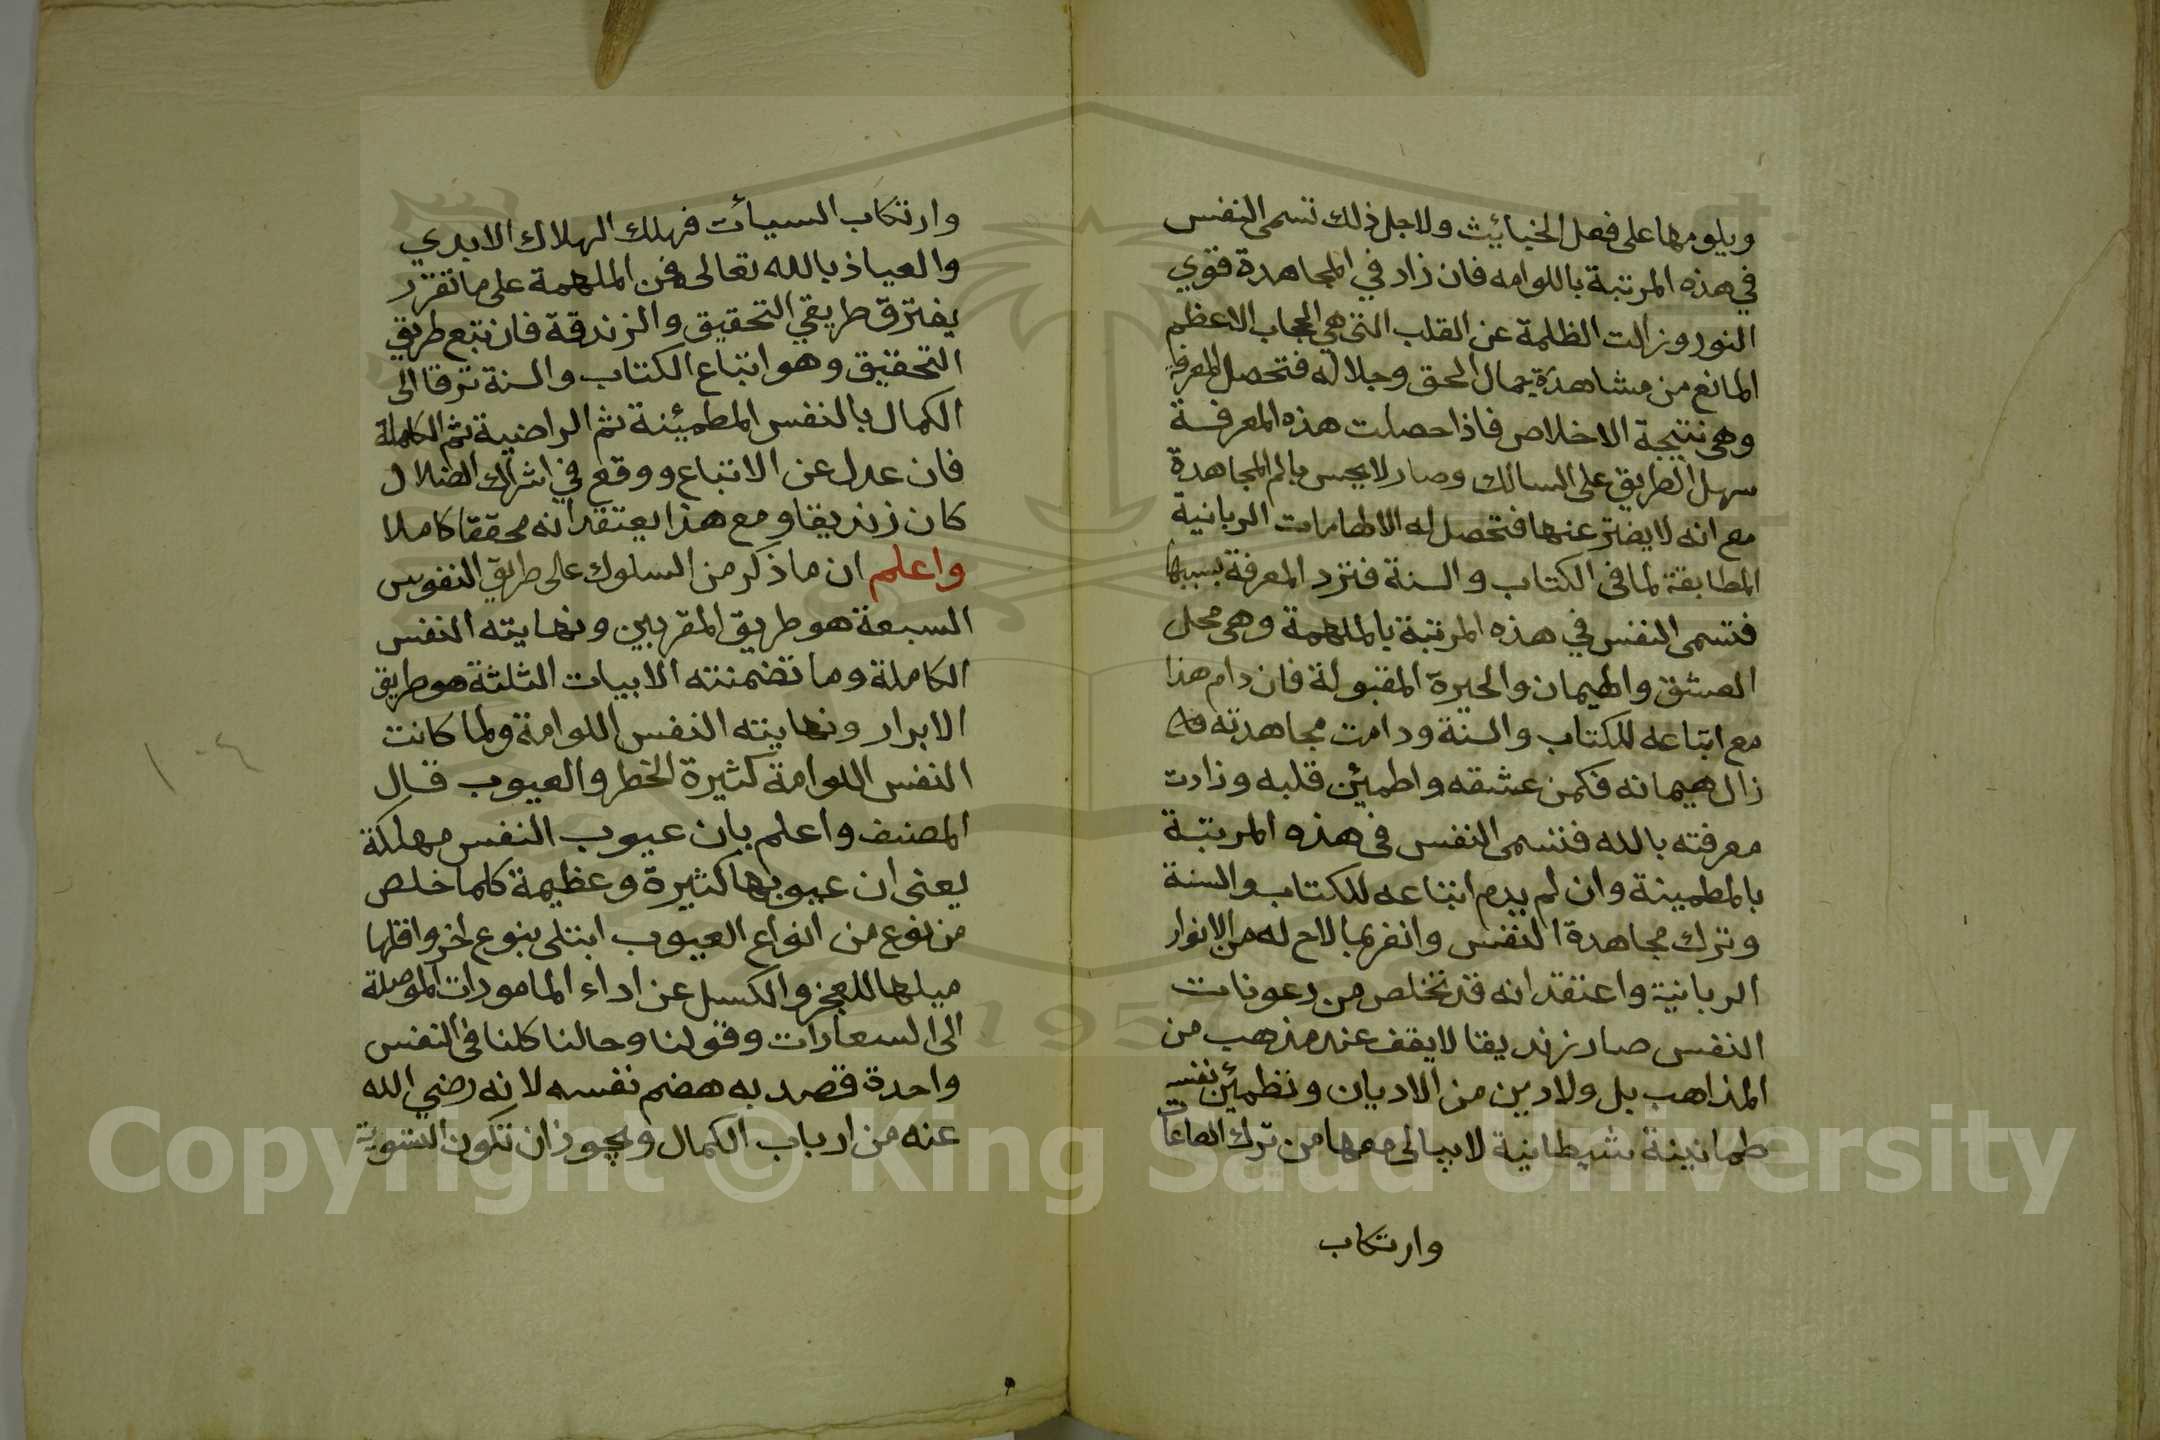 ويلومها على فعل الخبائيث ولاجل ذلك تسمى النفس
في هذه المرتبة باللوامه فان زاد في المجاهدة قوي
النور وزالت الظلمة عن القلب التى هي الحجاب الاعظم
المانع من مشاهدة جمال الحق وجلاله فتحصل المعرفة
وهى نتيجة الاخلاص فاذا حصلت هذه المعرفة
سهل الطريق على السالك وصار لا يحس بالم المجاهدة
مع انه لا يفتر عنها فتحصل له الالهامات الربانية
المطابقة لما فى الكتاب والسنة فتزد المعرفة بسببها
فتسمى النفس في هذه المرتبة بالملهمة وهى محل
العشق والهيمان والحيرة المقبولة فان دام هذا
مع اتباعه للكتاب والسنة ودامت مجاهدته
زال هيمانه فكمن عشقه واطمئن قلبه وزادت
معرفته بالله فتسمى النفس فى هذه المرتبة
بالمطمينة وان لم يدم اتباعه للكتاب والسنة
وترك مجاهدة النفس وانغر بما لاح له من الانوار
الربانية واعتقد انه قد تخلص من رعونات
النفس صار زنديقا لا يقف عند مذهب من
المذاهب بل ولا دين من الاديان وتطمئن نفسه
طمانينة شيطانية لا يبالى معها من ترك الطاعات
وارتكاب
وارتكاب السيأت فهلك الهلاك الابدي
والعياذ بالله تعالى فمن الملهمة على ما تقرر
يفترق طريقي التحقيق والزندقة فان تبع طريق
التحقيق وهو اتباع الكتاب والسنة ترقا الى
الكمال بالنفس المطمئنة ثم الراضية ثم الكاملة
فان عدل عن الاتباع ووقع في اشراك الضلال
كان زنديقا ومع هذا يعتقد انه محققا كاملا
واعلم ان ما ذكر من السلوك على طريق النفوس
السبعة هو طريق المقربين ونهايته النفس
الكاملة وما تضمنته الابيات الثلثة هو طريق
الابرار ونهايته النفس اللوامة ولما كانت
النفس اللوامة كثيرة الخطر والعيوب قال
المصنف واعلم بان عيوب النفس مهلكة
يعنى ان عيوبها كثيرة وعظيمة كلما خلص
من نوع من انواع العيوب ابتلى بنوع اخر واقلها
ميلها للعجز والكسل عن اداء المامورات الموصلة
الى السعادات وقولنا وحالنا كلنا فى النفس
واحدة قصد به هضم نفسه لانه رضي الله
عنه من ارباب الكمال ويجوز ان تكون التسوية
١٠٤
1957
Copyright © King Saud University